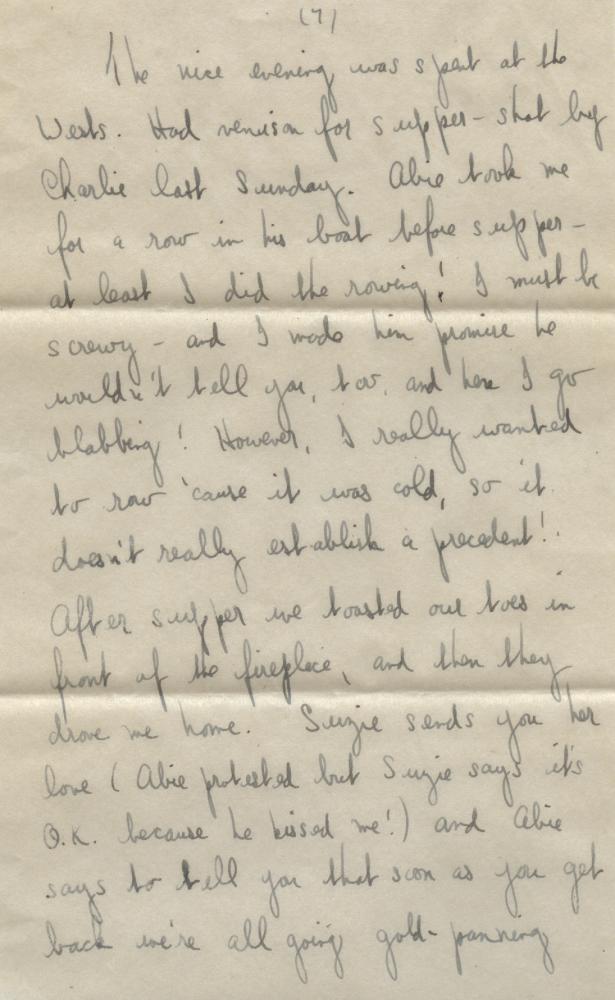 (7)
The nice evening was spent at the
Wests. Had venison for supper - shot by
Charlie last Sunday. Abie took me
for a row in his boat before supper -
at least I did the rowing! I must be
screwy - and I made him promise he
wouldn't tell you, too, and here I go
blabbing! However, I really wanted
to row 'cause it was cold, so it
doesn't really establish a precedent!
After supper we toasted our toes in
front of the fireplace, and then they
drove me home. Suzie sends you her
love (Abie protested but Suzie says it's
O.K. because he kissed me!) and Abie
says to tell you that soon as you get
back we're all going gold-panning